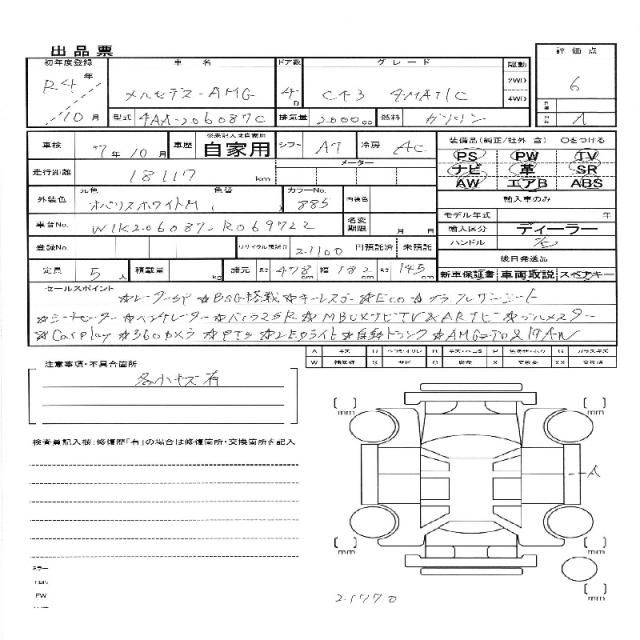 出品票
初年度登録 車名 ドア数 グレード 駆動 評価点
R4年 メルセデス-AMG 4D C43 4MATIC 2WD 4WD 6
10月 型式 4AA-206087C 排気量 2000cc 燃料 ガソリン A
車検 R7年10月 車歴 自家用 シフト AT 冷房 AC
装備品(純正/社外 含) ○をつける
PS PW TV
ナビ 革 SR
AW エアB ABS
走行距離 18117 km メーター
外装色 元色 オパリスホワイトM 色替 カラーNo. 885 内装色
輸入車のみ
モデル年式 年
車台No. W1K2060872R069722 名変期限 月 日
輸入区分 ディーラー
ハンドル
登録No. リサイクル預託金 21100 円預託済 未預託
後日発送品
定員 5人 積載量 kg 諸元 長さ 478cm 幅 182cm 高さ 145cm
新車保証書 車両取説 スペアキー
セールスポイント
☆レーダーSP ☆BSG搭載 ☆キーレスゴー ☆Eco ☆フラフルパワーシート
☆シートヒーター ☆ベンチレーター ☆パノラマSR ☆MBUXナビTV&ARナビ ☆ブルメスター
☆Carplay ☆360カメラ ☆PTS ☆LEDライト ☆自動トランク ☆AMGエアロ&19AW
注意事項・不具合箇所
各小キズ有
検査員記入欄:修復歴「有」の場合は修復箇所・交換箇所を記入
mm mm
A
mm mm
PW
21770